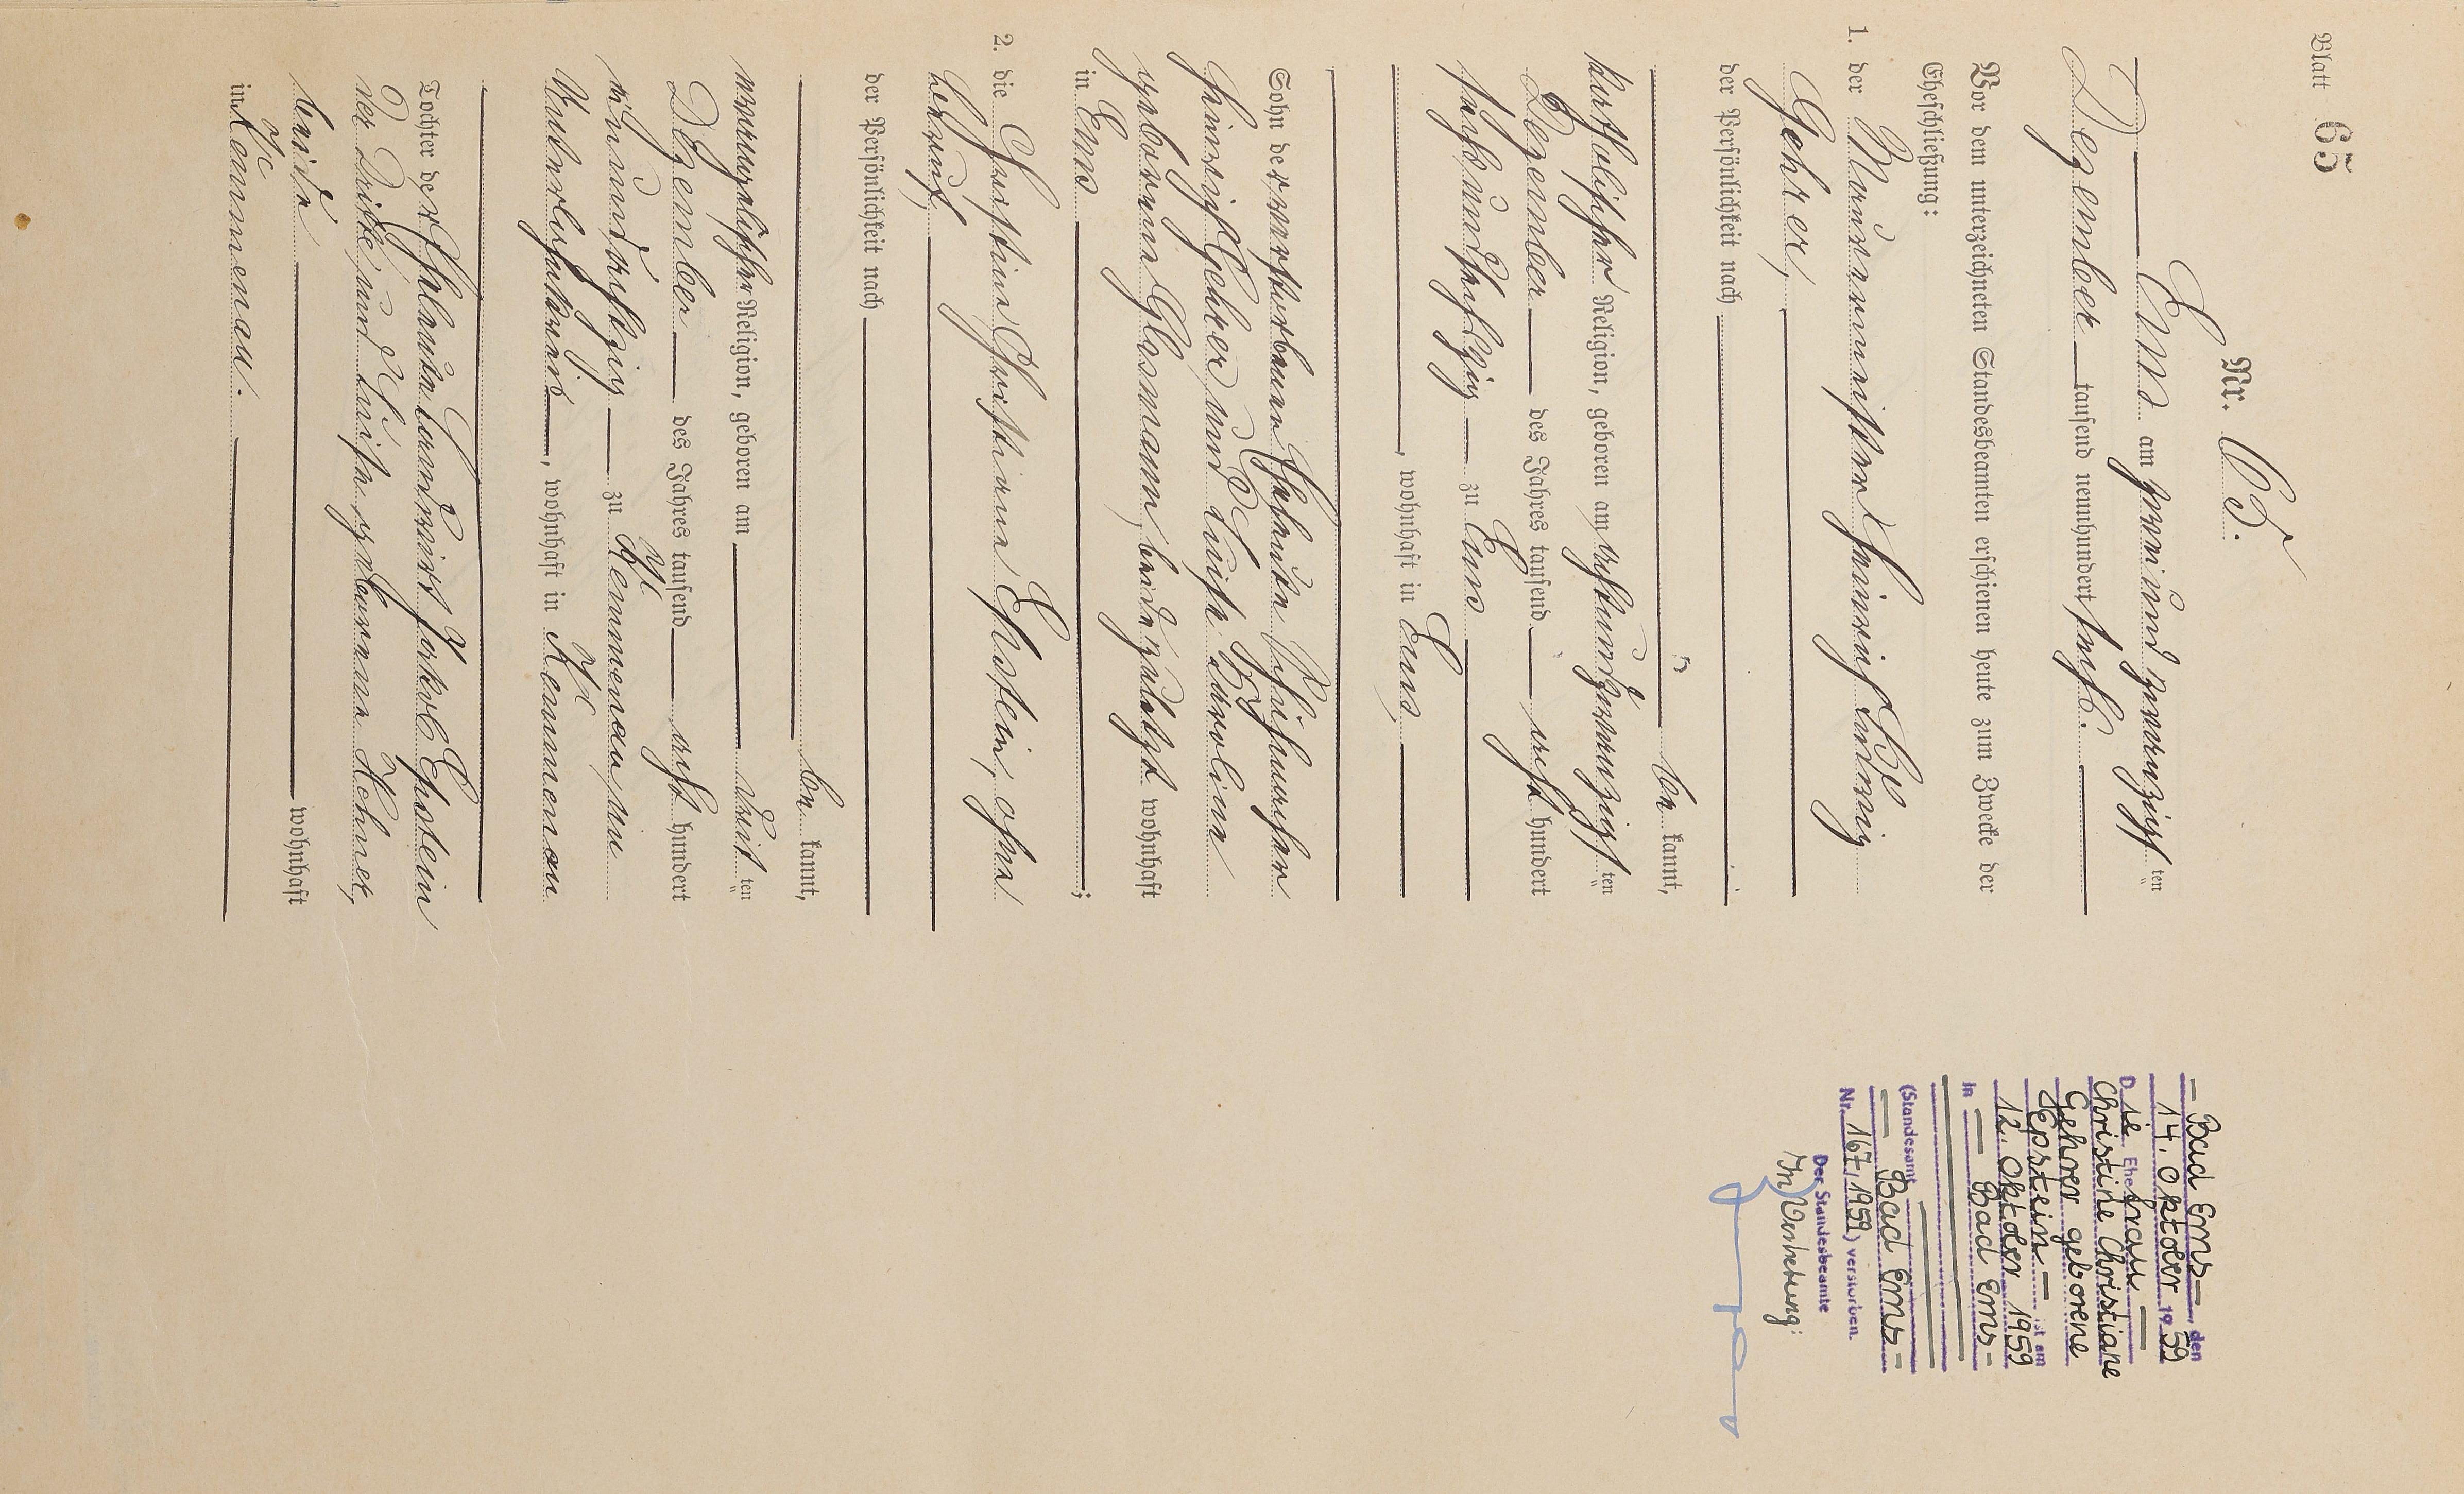 Blatt 65
Nr. 65.
Ems am zwei und zwanzigsten
Dezember tausend neunhundert sechs.
Vor dem unterzeichneten Standesbeamten erschienen heute zum Zwecke der
Eheschließung:
1. der Maurermeister Heinrich Ludwig
Gehrer,
der Persönlichkeit nach
be kannt,
katholischer Religion, geboren am achtundzwanzigsten
Dezember des Jahres tausend acht hundert
sechsundsechzig zu Ems
, wohnhaft in Ems,
Sohn der verstorbenen Eheleute
Heinrich Gehrer und Luise Karoline
geborenen Glasmann, beide zuletzt wohnhaft
in Ems ;
2. die Christine Christiane Epstein, ohne
Beruf,
der Persönlichkeit nach
be kannt,
evangelischer Religion, geboren am dritten
Dezember des Jahres tausend acht hundert
ein und achtzig zu Kemmenau im
Unterlahnkreis, wohnhaft in Kemmenau
Tochter der Eheleute Landwirt Jakob Epstein
der Dritte und Luise geborene Hehner,
beide wohnhaft
in Kemmenau.
Bad Ems, den
14. Oktober 1959
Die Ehefrau
Christine Christiane
Gehrer geborene
Epstein ist am
12. Oktober 1959
in Bad Ems
(Standesamt
Bad Ems
Nr. 167/1959) verstorben.
Der Standesbeamte
In Vertretung: